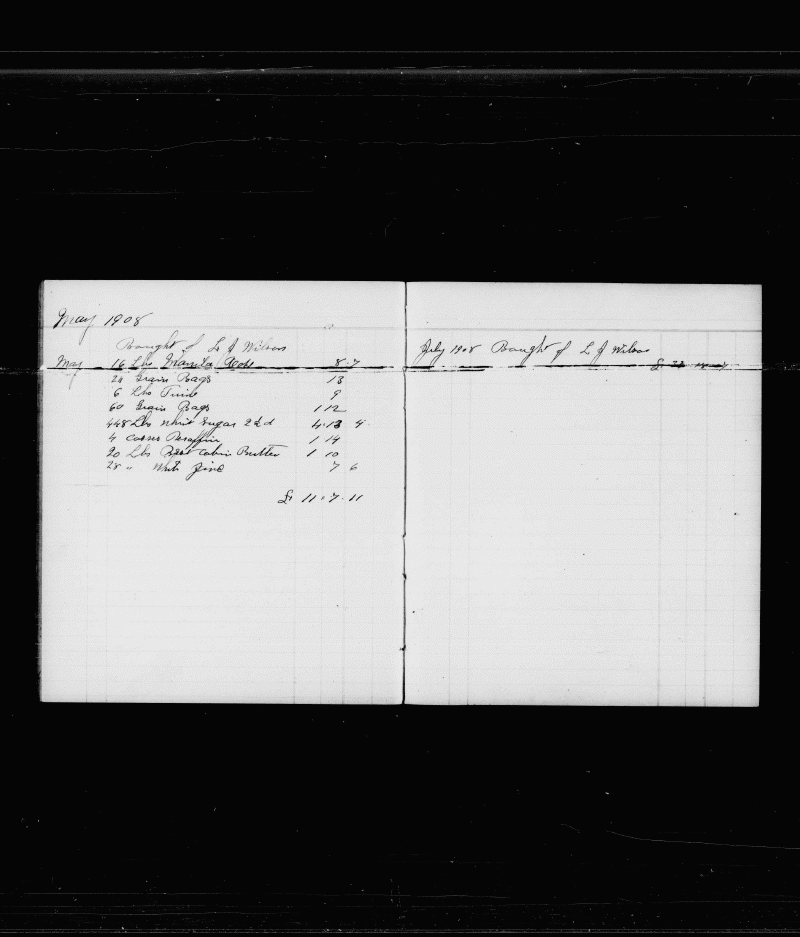 May 1908
Bought of L J Wilson
May 16 Lbs Manila Rope 8.7
20 Grain Bags 13
6 Lbs Twine 9
60 Grain Bags 1 12
448 Lbs White Sugar 2½d 4.13 4
4 Cases Paraffin 1 14
20 Lbs Best Cabin Butter 1 10
28 " White Zinc 7 6
£ 11.7.11
July 1908 Bought of L J Wilson
£